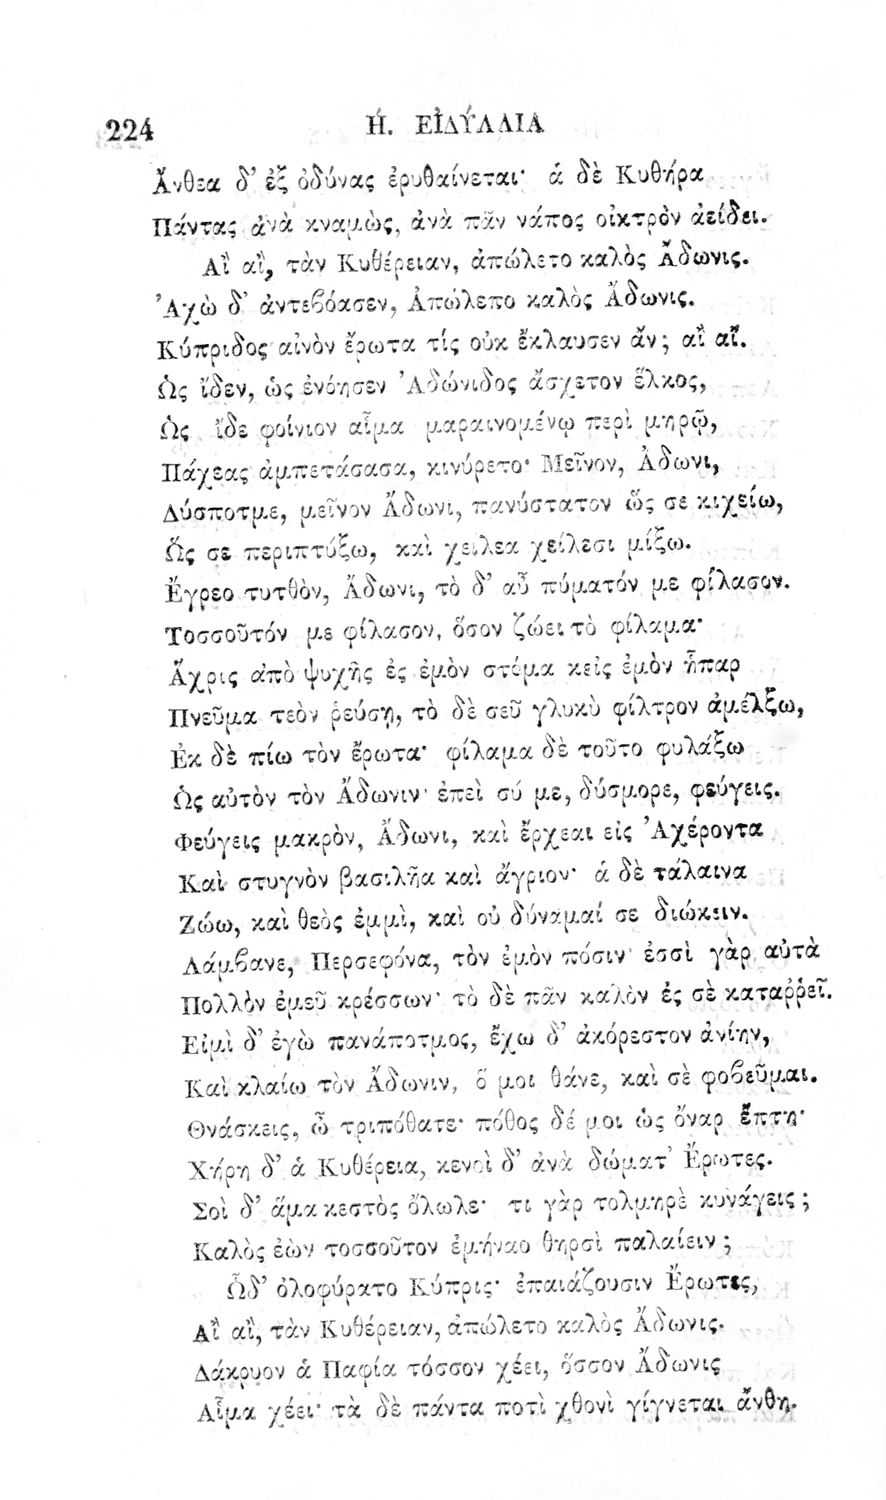 224 Η. ΕἸΔΎΛΛΙΑ
Ἄνθεα δ’ ἐξ ὀδύνας ἐρυθαίνεται· ἁ δὲ Κυθήρα
Πάντας ἀνὰ κναμὼς, ἀνὰ πᾶν νάπος οἰκτρὸν ἀείδει.
Αἲ αἲ, τὰν Κυθέρειαν, ἀπώλετο καλὸς Ἄδωνις.
Ἀχὼ δ’ ἀντεβόασεν, Ἀπώλεπο καλὸς Ἄδωνις.
Κύπριδος αἰνὸν ἔρωτα τίς οὐκ ἔκλαυσεν ἄν; αἲ αἲ.
Ὡς ἴδεν, ὡς ἐνόησεν Ἀδώνιδος ἄσχετον ἕλκος,
Ὡς ἴδε φοίνιον αἷμα μαραινομένῳ περὶ μηρῷ,
Πάχεας ἀμπετάσασα, κινύρετο· Μεῖνον, Ἄδωνι,
Δύσποτμε, μεῖνον Ἄδωνι, πανύστατον ὥς σε κιχείω,
Ὥς σε περιπτύξω, καὶ χείλεα χείλεσι μίξω.
Ἔγρεο τυτθὸν, Ἄδωνι, τὸ δ’ αὖ πύματόν με φίλασον.
Τοσσοῦτόν με φίλασον, ὅσον ζώει τὸ φίλαμα·
Ἄχρις ἀπὸ ψυχῆς ἐς ἐμὸν στόμα κεἰς ἐμὸν ἧπαρ
Πνεῦμα τεὸν ῥεύσῃ, τὸ δὲ σεῦ γλυκὺ φίλτρον ἀμέλξω,
Ἐκ δὲ πίω τὸν ἔρωτα· φίλαμα δὲ τοῦτο φυλάξω
Ὡς αὐτὸν τὸν Ἄδωνιν· ἐπεὶ σύ με, δύσμορε, φεύγεις.
Φεύγεις μακρὸν, Ἄδωνι, καὶ ἔρχεαι εἰς Ἀχέροντα
Καὶ στυγνὸν βασιλῆα καὶ ἄγριον· ἁ δὲ τάλαινα
Ζώω, καὶ θεὸς ἐμμὶ, καὶ οὐ δύναμαί σε διώκειν.
Λάμβανε, Περσεφόνα, τὸν ἐμὸν πόσιν· ἐσσὶ γὰρ αὐτὰ
Πολλὸν ἐμεῦ κρέσσων· τὸ δὲ πᾶν καλὸν ἐς σὲ καταῤῥεῖ.
Εἰμὶ δ’ ἐγὼ πανάποτμος, ἔχω δ’ ἀκόρεστον ἀνίην,
Καὶ κλαίω τὸν Ἄδωνιν, ὅ μοι θάνε, καὶ σὲ φοβεῦμαι.
Θνάσκεις, ὦ τριπόθατε· πόθος δέ μοι ὡς ὄναρ ἔπτη·
Χήρη δ’ ἁ Κυθέρεια, κενοὶ δ’ ἀνὰ δώματ’ Ἔρωτες.
Σοὶ δ’ ἅμα κεστὸς ὄλωλε· τι γὰρ τολμηρὲ κυνάγεις;
Καλὸς ἐὼν τοσσοῦτον ἐμήναο θηρσὶ παλαίειν;
Ὧδ’ ὀλοφύρατο Κύπρις· ἐπαιάζουσιν Ἔρωτες,
Αἲ αἲ, τὰν Κυθέρειαν, ἀπώλετο καλὸς Ἄδωνις.
Δάκρυον ἁ Παφία τόσσον χέει, ὅσσον Ἄδωνις
Αἷμα χέει· τὰ δὲ πάντα ποτὶ χθονὶ γίγνεται ἄνθη.